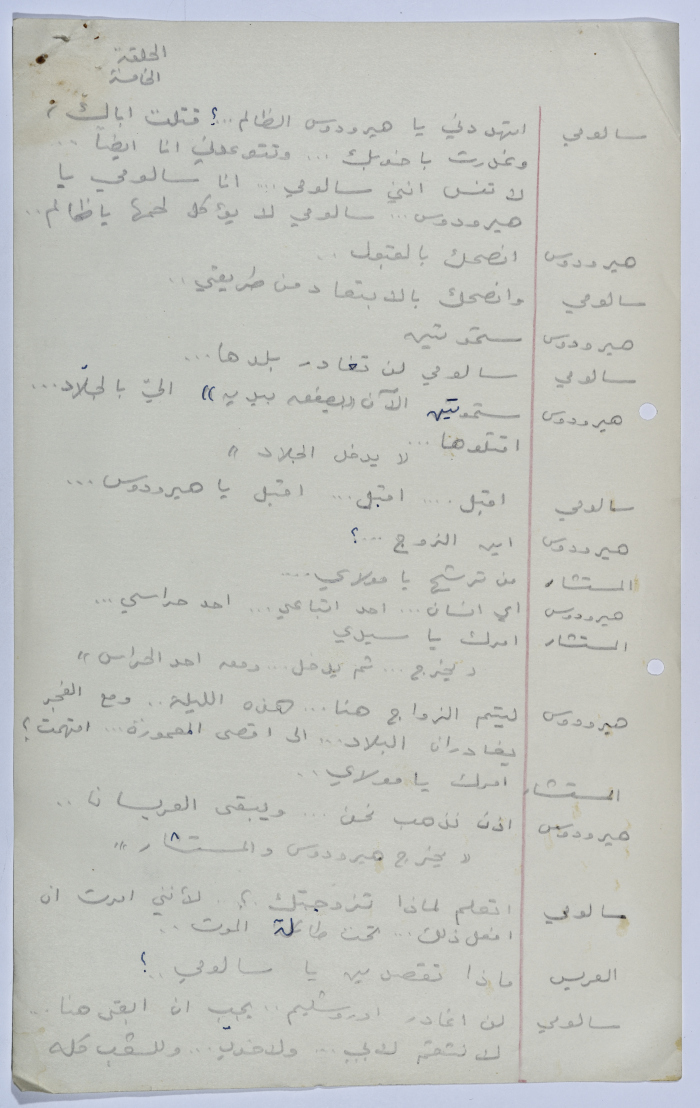 الحلقة
الخامسة
سالومي اتهددني يا هيرودوس الظالم...؟ قتلت اباك،
وغدرت باخويك ... وتتوعدني انا ايضاً ..
لا تنس انني سالومي ... انا سالومي يا
هيرودوس... سالومي لا يؤكل لحمها يا ظالم..
هيرودوس انصحك بالقبول ..
سالومي وانصحك بالابتعاد من طريقي ..
هيرودوس ستموتين
سالومي سالومي لن تغادر بلدها ...
هيرودوس ستموتين الآن «يصفق بيديه» اليّ بالجلاد...
اقتلوها ... لا يدخل الجلاد »
سالومي اقبل .... اقبل... اقبل يا هيرودوس ...
هيرودوس اين الزوج ...؟
المستشار من ترشح يا مولاي ....
هيرودوس اي انسان... احد اتباعي... احد حراسي...
المستشار امرك يا سيدي
« يخرج ... ثم يدخل... ومعه احد الحراس »
هيرودوس ليتم الزواج هنا... هذه الليلة.. ومع الفجر
يغادران البلاد... الى اقصى المعمورة... افهمت؟
المستشار امرك يا مولاي ..
هيرودوس اذن نذهب نحن ... ويبقى العريسان ..
« يخرج هيرودوس والمستشار »
سالومي اتعلم لماذا تزوجتك ..؟ لأنني امرت ان
افعل ذلك... تحت طائلة الموت ..
العريس ماذا تقصدين يا سالومي ..؟
سالومي لن اغادر اورشليم .. يجب ان ابقى هنا ..
لانتقم لابي ... ولاخويّ ... وللشعب كله